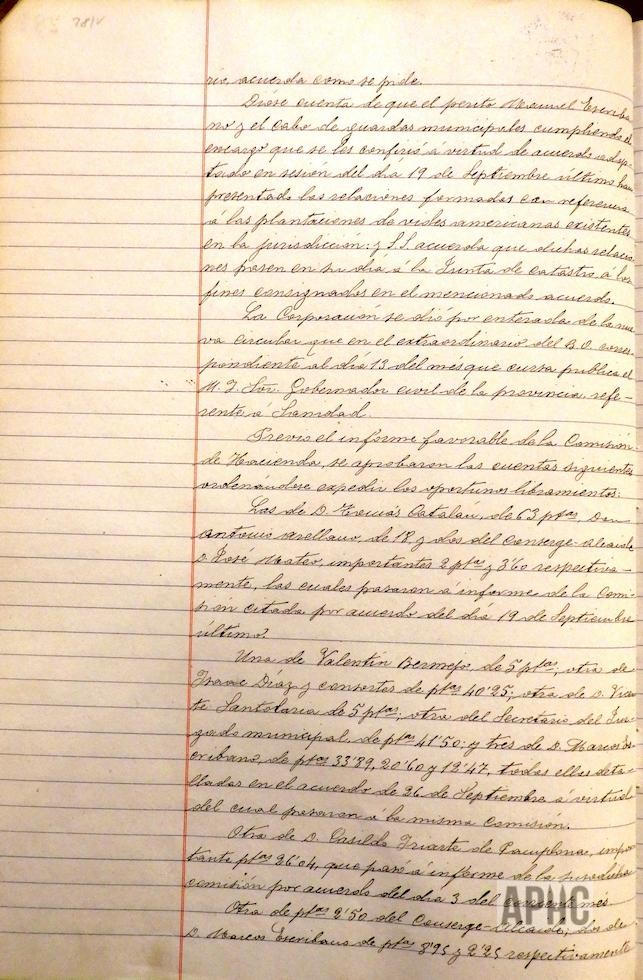 781v
rio, acuerda como se pide.
Dióse cuenta de que el perito Manuel Escriba
no y el cabo de guardas municipales cumpliendo el
encargo que se les confirió á virtud de acuerdo adop
tado en sesión del día 19 de Septiembre último han
presentado las relaciones formadas con referencia
á las plantaciones de vides americanas existentes
en la jurisdiccion: y S.S. acuerda que dichas relacio
nes pasen en su día á la Junta de catastro á los
fines consignados en el mencionado acuerdo.
La Corporación se dió por enterada de la nue
va circular que en el extraordinario del B.O. corres
pondiente al día 13 del més que cursa publica el
M. I. Sor. Gobernador civil de la provincia, refe-
rente á Sanidad.
Previo el informe favorable de la Comisión
de Hacienda, se aprobaron las cuentas siguientes
ordenándose expedir los oportunos libramientos:
Las de D. Tomás Catalan, de 63 ptas, Don
Antonio Arellano, de 18, y dos del Conserge-Alcaide
D. José Mateo, importantes 2 ptas y 3'60 respectiva-
mente, las cuales pasaron á informe de la Comi-
sión citada por acuerdo del día 19 de Septiembre
último.
Una de Valentin Bermejo de 5 ptas; otra de
Isaac Díaz y consortes de ptas 40'25; otra de D. Vicen
te Santolaria de 5 ptas; otra del Secretario del Juz
gado municipal, de ptas 41'50; y tres de D. Marcos Es
cribano, de ptas 33'89, 20'60 y 12'47, todas ellas deta-
lladas en el acuerdo de 26 de Septiembre á virtud
del cual pasaron á la misma Comisión.
Otra de D. Casildo Iriarte de Pamplona, impor
tante ptas 26'04, que pasó á informe de la susodicha
comisión por acuerdo del día 3 del corriente més
Otra de ptas 2'50 del Conserge-Alcaide; dos de
D. Marcos Escribano de ptas 3'95 y 2'25 respectivamente
APHC